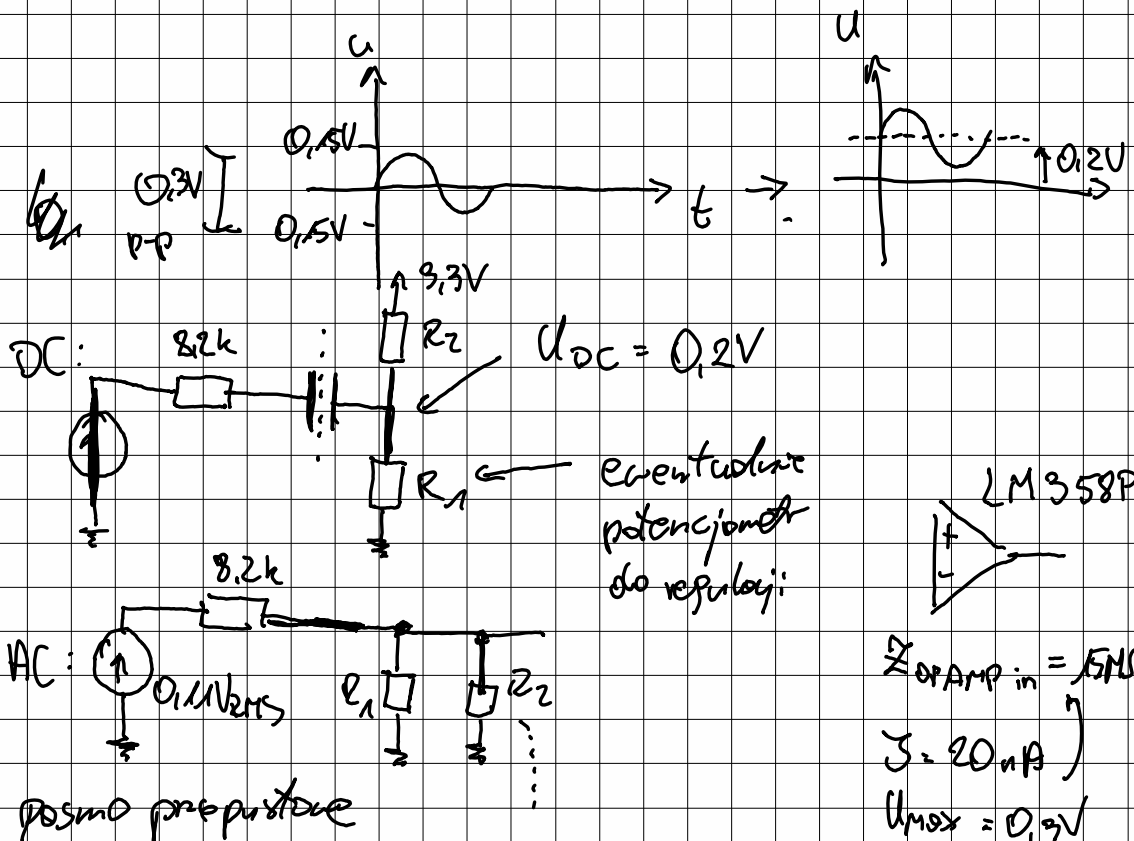 u
U
0,15V
0,3V
p-p
0,15V
t
0,2V
3,3V
R2
DC:
8,2k
UDC = 0,2V
R1
ewentualnie
potencjometr
do regulacji
LM358P
8,2k
AC:
0,11VRMS
R1
R2
ZOPAMP in = 15MΩ
I = 20nA
UMAX = 0,3V
pasmo przepustowe